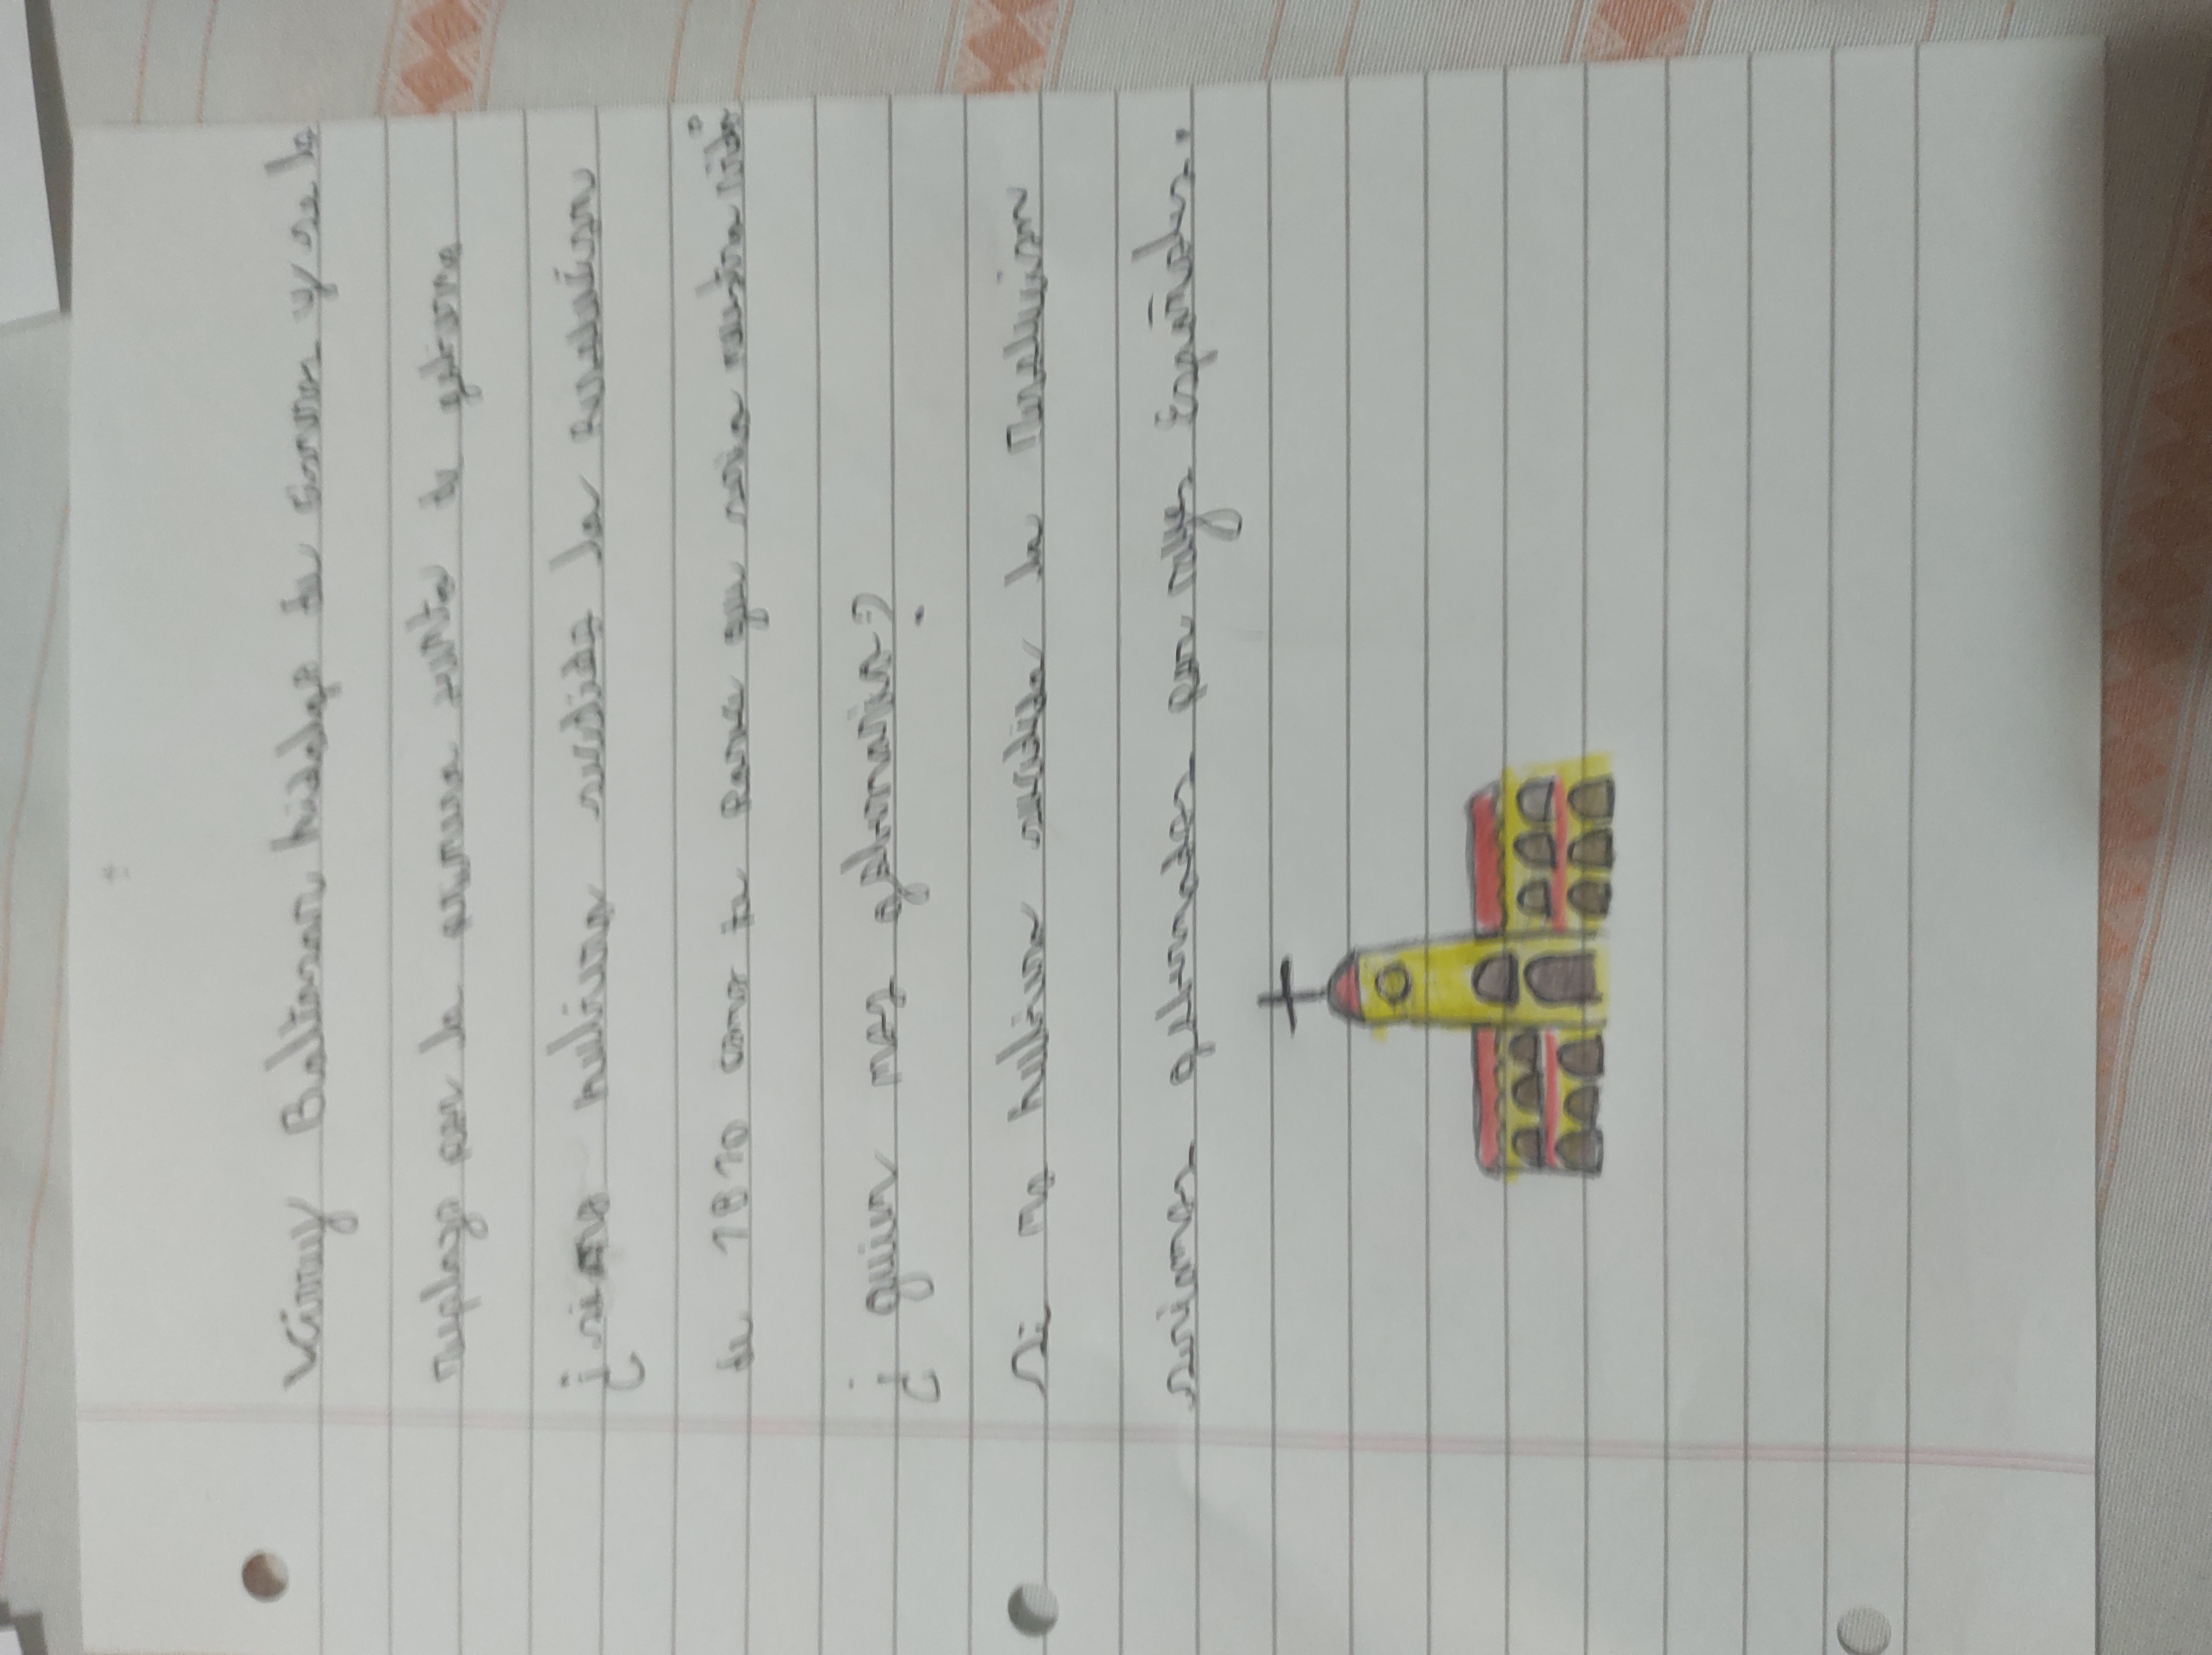 Virrey Baltasar hidalgo de Cisneros y se lo
remplazo por la primera junta de gobierno
¿si no hubiera sucedido la revolucion
de 1810 como te parece que seria nuestra vida?
¿quien nos gobernaria?
si no hubiera sucedido la Revolucion
seriamos gobernados por Reyes Españoles.